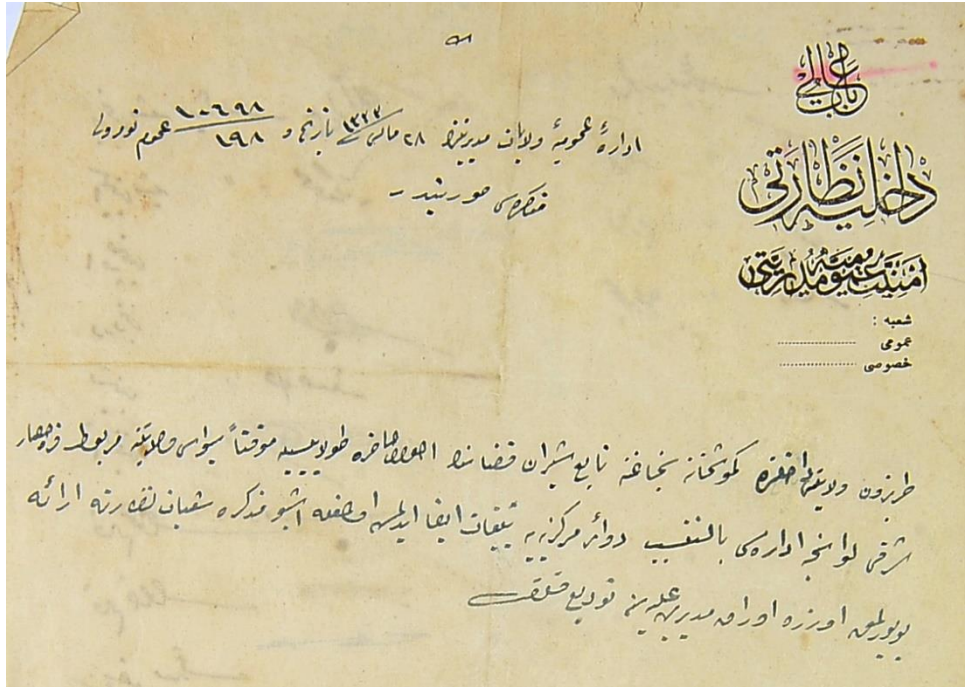 باب عالی
داخلیه نظارتی
امنیت عمومیه مدیریتی
شعبه :
عمومی
خصوصی
ادارهٔ عمومیهٔ ولایات مدیریتنك ٢٨ مارس ١٣٣٣ تاریخ و ١٠٦٩٨ / ١٩٨ عموم نومرولی
تذکره‌سی صورتیدر
طربزون ولایتی كموشخانه سنجاغنه تابع شیران قضاسنك احوال حاضره طولاییسیله موقتاً سیواس ولایتنه مربوط قره‌حصار
شرقی لواسنجه اداره‌سی بالتنسیب دوائر مركزیه‌یه تبلیغات ایفا ایدلمش اولمغله اشبو تذكره شعبات نظارته ارائه
بیورلمق اوزره اوراق مدیریت علیه‌سنه تودیع قلندی